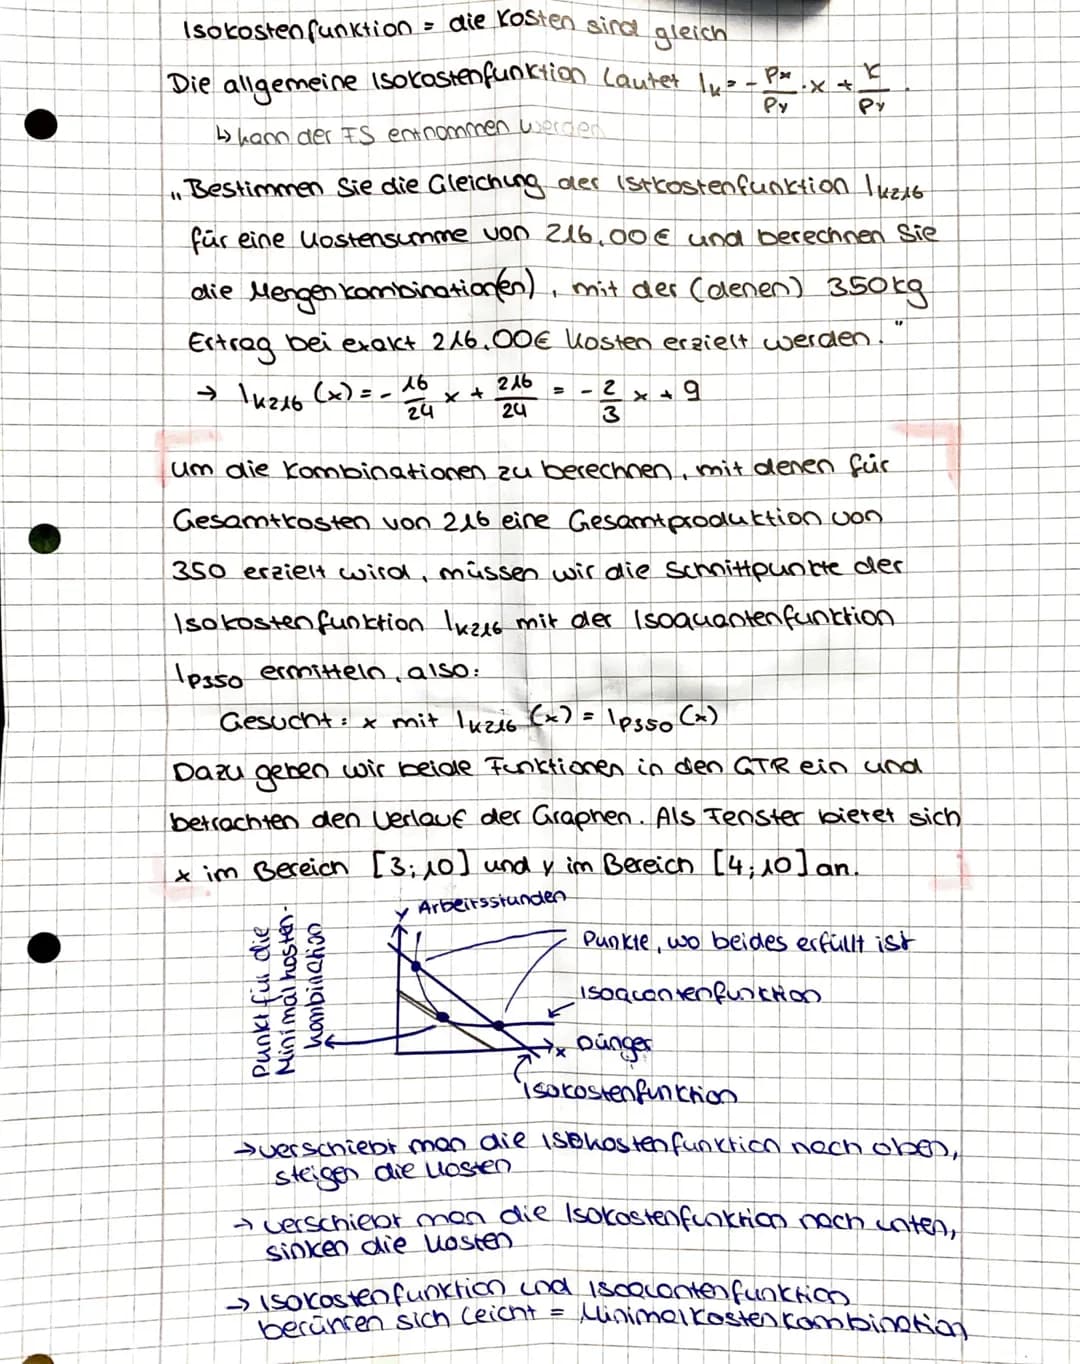 Isokostenfunktion = die Kosten sind gleich
Die allgemeine Isokostenfunktion lautet I_K = - Px/Py · x + K/Py.
↳ kann der FS entnommen werden
„Bestimmen Sie die Gleichung der Isokostenfunktion I_K216
für eine Kostensumme von 216,00€ und berechnen Sie
die Mengenkombination(en), mit der (denen) 350kg
Ertrag bei exakt 216,00€ Kosten erzielt werden."
→ I_K216 (x) = - 16/24 x + 216/24 = - 2/3 x + 9
um die Kombinationen zu berechnen, mit denen für
Gesamtkosten von 216 eine Gesamtproduktion von
350 erzielt wird, müssen wir die Schnittpunkte der
Isokostenfunktion I_K216 mit der Isoquantenfunktion
I_P350 ermitteln, also:
Gesucht: x mit I_K216 (x) = I_P350 (x)
Dazu geben wir beide Funktionen in den GTR ein und
betrachten den Verlauf der Graphen. Als Fenster bietet sich
x im Bereich [3;10] und y im Bereich [4;10] an.
y Arbeitsstunden
Punkt für die
Minimalkosten-
kombination
Punkte, wo beides erfüllt ist
Isoquantenfunktion
x Dünger
Isokostenfunktion
→ verschiebt man die Isokostenfunktion nach oben,
steigen die Kosten
→ verschiebt man die Isokostenfunktion nach unten,
sinken die Kosten
→ Isokostenfunktion und Isoquantenfunktion
berühren sich leicht = Minimalkostenkombination